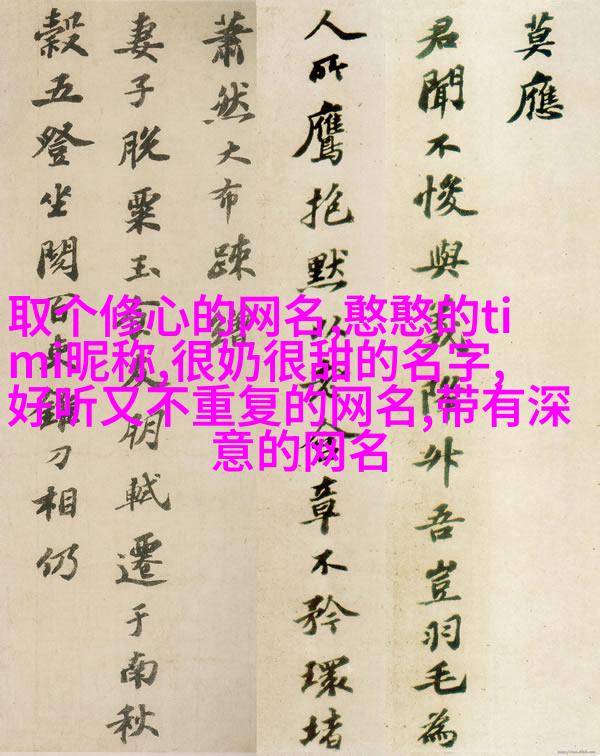 取个修心的网名,憨憨的ti
mi昵称,很奶很甜的名字,
好听又不重复的网名,带有深
意的网名
莫應
君聞不悛與降外吾豈羽毛為
人所鷹抱默章不矜環堵
蕭然大布疎
妻子脱粟玉朋軾遷于南秋
穀五登坐閱百車刀相仍